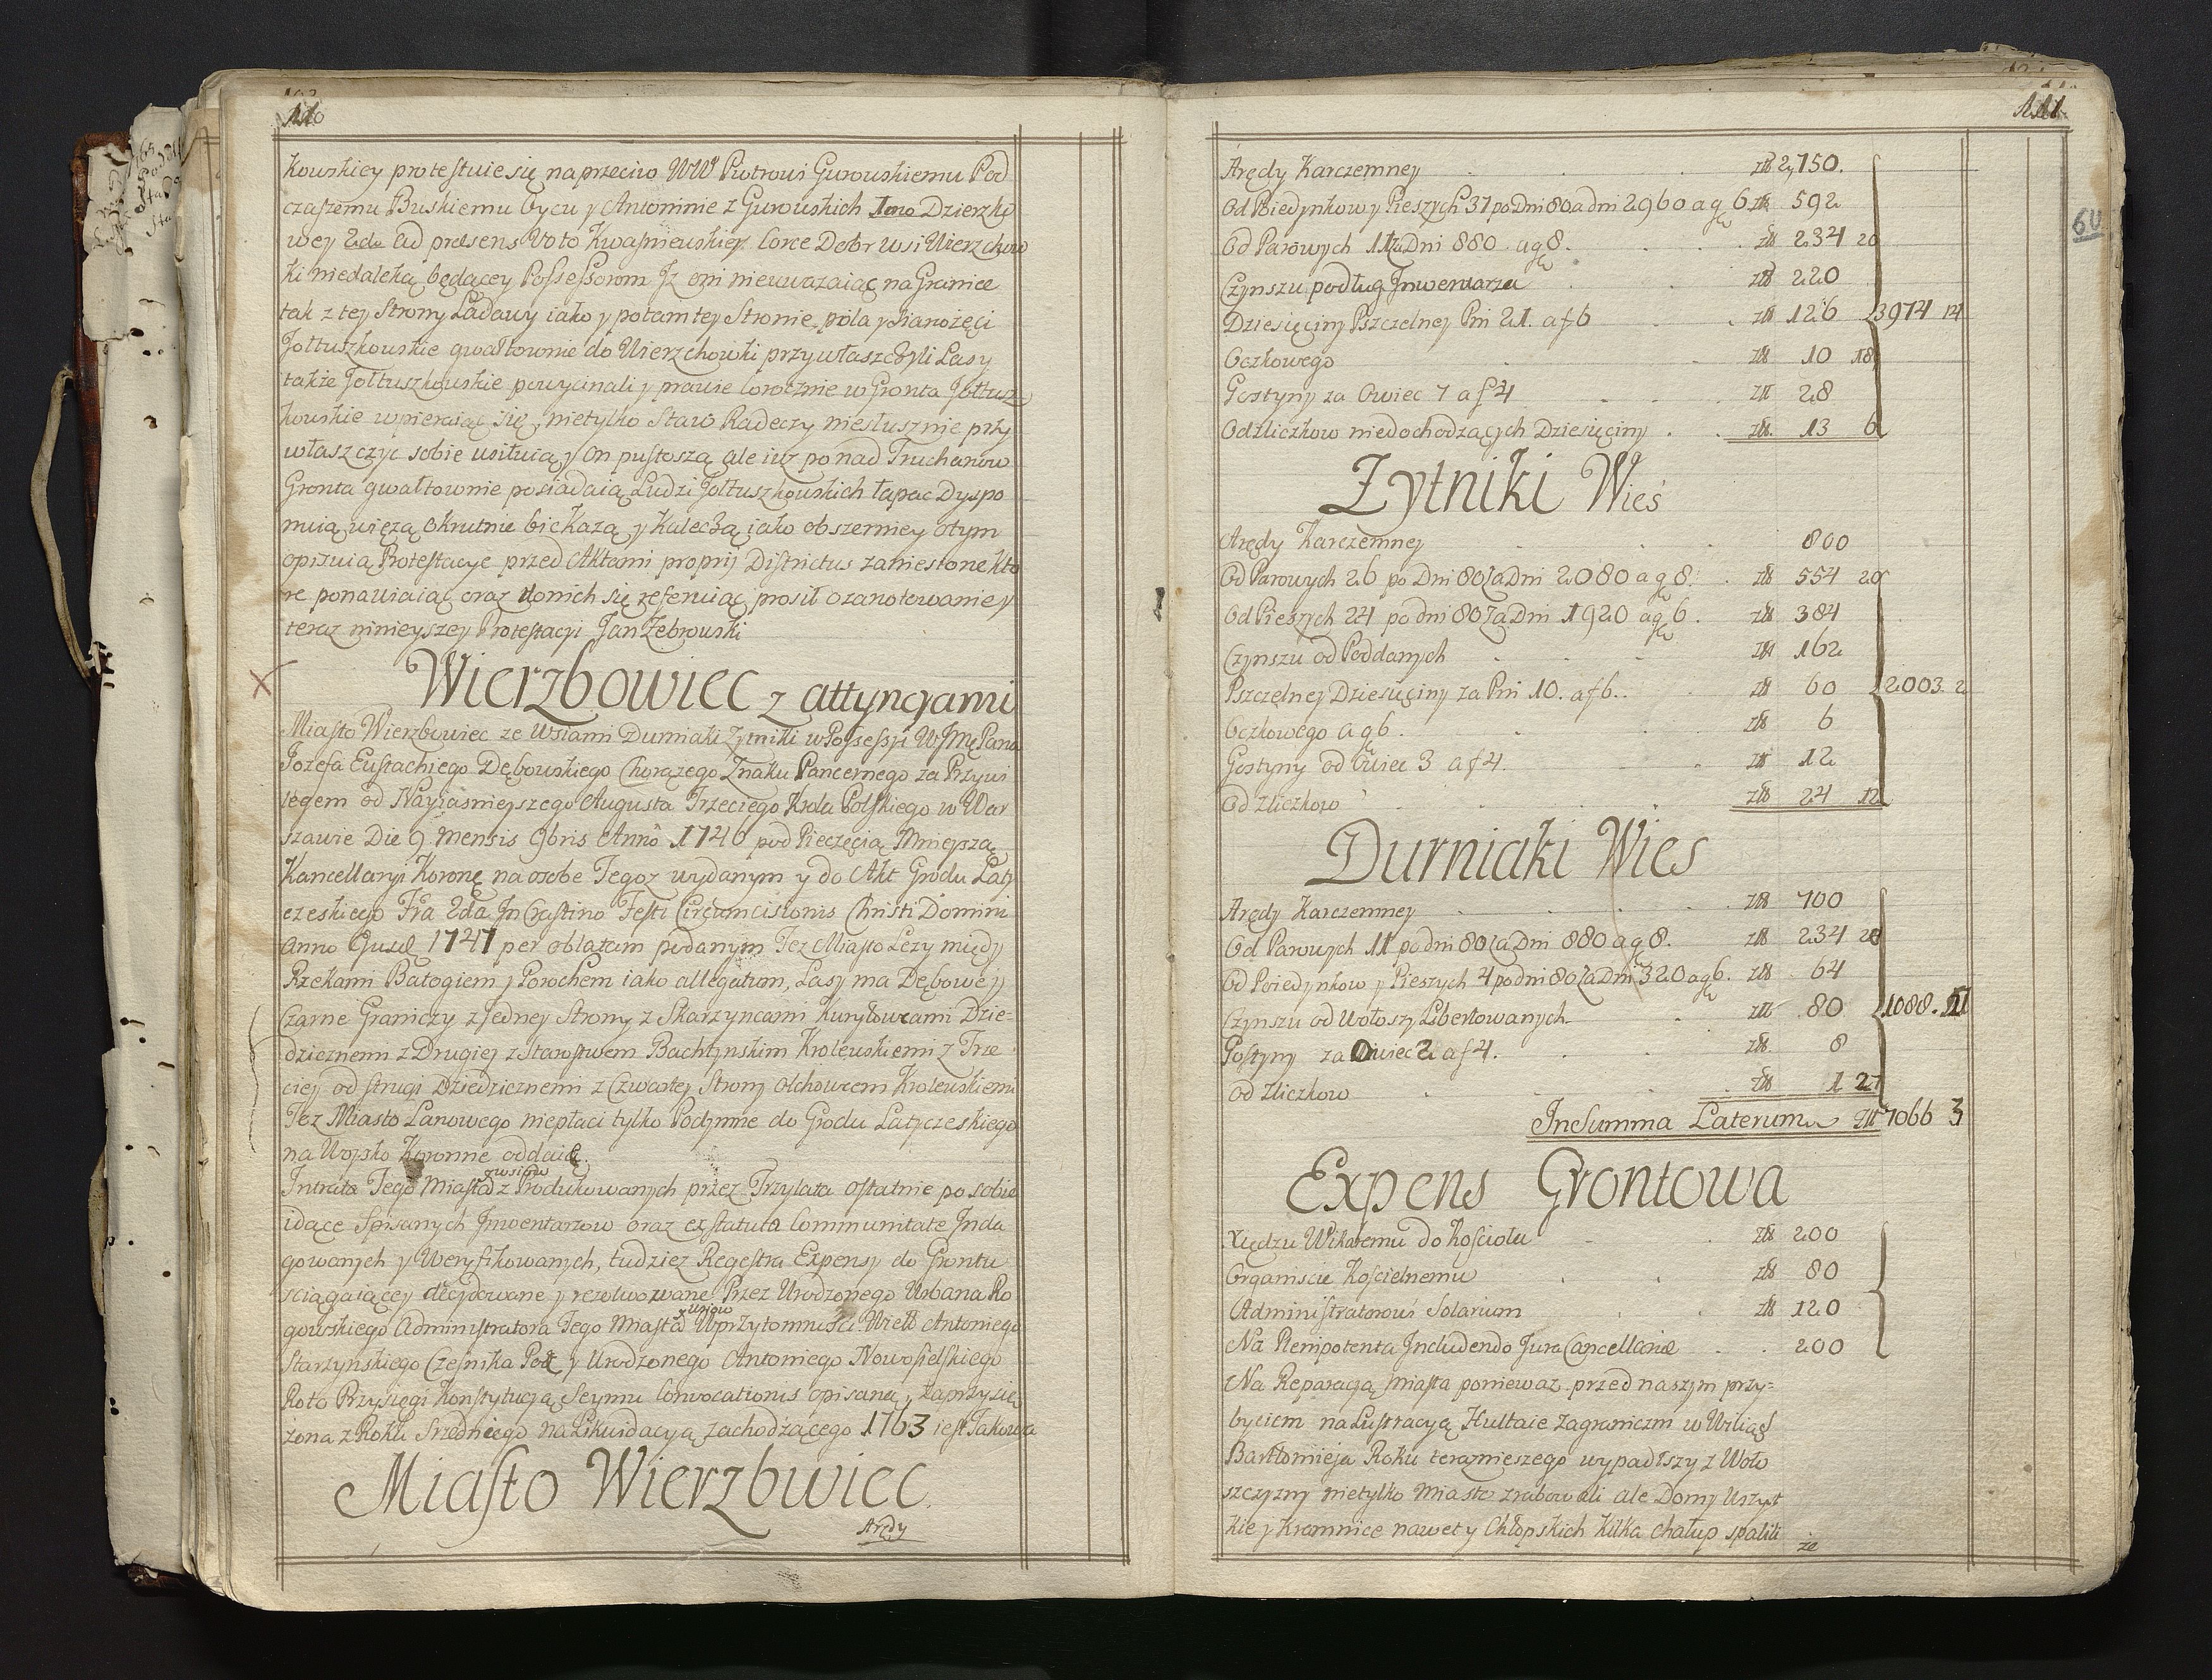 110
kowskiey protestuie się naprzeciw WW Piotrowi Gurowskiemu Pod
czaszemu Buskiemu Oycu y Antoninie z Gurowskich 1mo Dzierzko
wey 2do ad præsens Voto Kwasniewskiey Corce Dobr wsi Wierzchow
ki niedaleką będącey Possessorom Iz oni nieuwazaiąc na Granice
tak z tey Strony Ladawy iako y potamtey Stronie pola y Sianozęci
Jołtuszkowskie gwałtownie do Wierzchowki przywłaszczyli Lasy
takze Jołtuszkowskie powycinali y prawie corocznie w Gronta Jołtusz
kowskie wpieraiąc się, nietylko Staw Radeczy niesłusznie przy
właszczyc sobie usiłuią y On pustoszą ale iuz ponad Truchanow
Gronta gwałtownie posiadaią Ludzi Jołtuszkowskich łapac Dyspo
nuią więzą okrutnie bic Kazą y Kaleczą iako obszerniey otym
opisuią Protestacye przed Aktami proprij Districtus zaniesione kto
re ponawiaiąc oraz donich się referuiąc prosił o zanotowanie y
teraz ninieyszey Protestacyi Jan Zebrowski
Wierzbowiec z attyngami
Miasto Wierzbowiec ze Wsiami Durniaki Zytniki w Possessyi WJMę Pana
Jozefa Eustachiego Dębowskiego Chorązego Znaku Pancernego za Przywi
legem od Nayiasnieyszego Augusta Trzeciego Krola Polskiego w War
szawie Die 9 Mensis 9bris Anno 1746 pod Pieczęcią Mnieyszą
Kancellaryi Koronę na osobe Tegoz wydanym y do Akt Grodu Laty
czeskiego Fria 2da In Crastino Festi Circumcisionis Christi Domini
Anno Ejusd 1747 per oblatam podanym Tez Miasto Lezy między
Rzekami Batogiem y Porochem iako allegatum, Lasy ma Dębowe y
Czarne Graniczy z Jedney Strony z Skarzyncami Kuryłowcami Dzie-
dzicznemi z Drugiey z Starostwem Bachtynskim Krolewskiemi z Trze
ciey od strugi Dziedzicznemi z Czwartey Strony Olchowcem Krolewskiemi
Tez Miasto Lanowego niepłaci tylko Podymne do Grodu Latyczeskiego
na Woysko Koronne oddaie.
Intrata Tego Miasta z wsiow z Produkowanych przez Trzylata ostatnie po sobie
idące Spisanych Inwentarzow oraz ex statuta Communitate Inda
gowanych y Weryfikowanych, tudziez Regestra Expensy do Grontu
sciągaiącey decydowane y rezolwowane Przez Urodzonego Urbana Ro
gowskiego Administratora Tego Miasta z wsiow Wprzytomności Wielb Antoniego
Starzynskiego Czesnika Pod y Urodzonego Antoniego Nowosielskiego
Roto Przysięgi Konstytucją Seymu Convocationis opisaną zaprzysię
zona z Roku Srzedniego na Likwidacyą zachodzącego 1763 iest Takowa
Miasto Wierzbwiec
Arędy
111
60
Arędy Karczemney zł 2,750.
Od Poiedynkow y Pieszych 37 po Dni 80 a dni 2960 a gę 6 zł 592
Od Parowych 11 za Dni 880 a gę 8. zł 234 20
Czynszu podług Inwentarza zł 220
Dziesięciny Pszczelney Pni 21. a f 6 zł 126 3974 14
Oczkowego zł 10 18
Gostyny za Owiec 7 a f 4 zł 28
Od zliczkow niedochodzących Dziesięciny zł 13 6
Zytniki Wieś
Arędy Karczemney 800
Od Parowych 26 po Dni 80 za Dni 2080 a gę 8. zł 554 20
Od Pieszych 24 po dni 80 za Dni 1920 a gę 6. zł 384
Czynszu od Poddanych zł 162
Pszczelney Dziesięciny za Pni 10. a f 6. zł 60 2003 2
Oczkowego a g 6. zł 6
Gostyny od Owiec 3 a f 4. zł 12
Od Zliczkow zł 24 12
Durniaki Wies
Arędy Karczemney zł 700
Od Parowych 11 po dni 80 za Dni 880 a gę 8. zł 234 20
Od Poiedynkow y Pieszych 4 po dni 80 za Dni 320 a gę 6. zł 64
Czynszu od Wołoszy Libertowanych zł 80 1088. 17
Gostyny za Owiec 2 a f 4. zł 8
od Zliczkow zł 1 27
In Summa Laterum zł 7066 3
Expens Grontowa
Xiędzu Wikaremu do Kosciołu zł 200
Organiscie Koscielnemu zł 80
Administratorowi Solarium zł 120
Na Plenipotenta Includendo Jura Cancellariæ 200
Na Reparacją Miasta poniewaz przed naszym przy-
byciem na Lustracyą Hultaie Zagraniczni w Wilią S
Bartłomieja Roku teraznieszego wypadszy z Woło
szczyzny nietylko Miasto zrabowali ale Domy Wszyst
kie y Kramnice nawet y Chłopskich kilka chałup spalili
ze